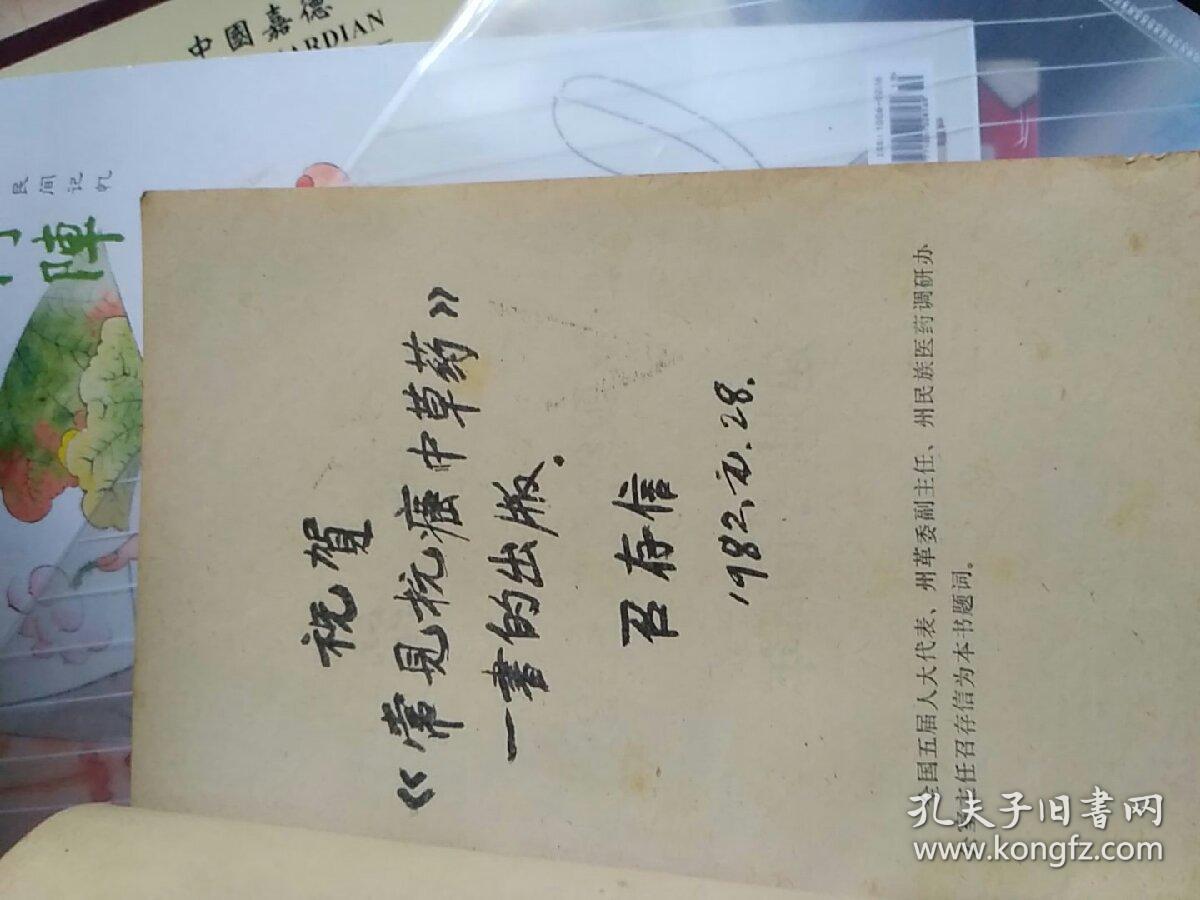 祝賀
《常見抗癌中草药》
一書的出版。
召存信
1982.元.28.
全国五届人大代表、州革委副主任、州民族医药调研办
公室主任召存信为本书题词。
中國嘉德
ARDIAN
民间记忆
陣
孔夫子旧书网
www.kongfz.com